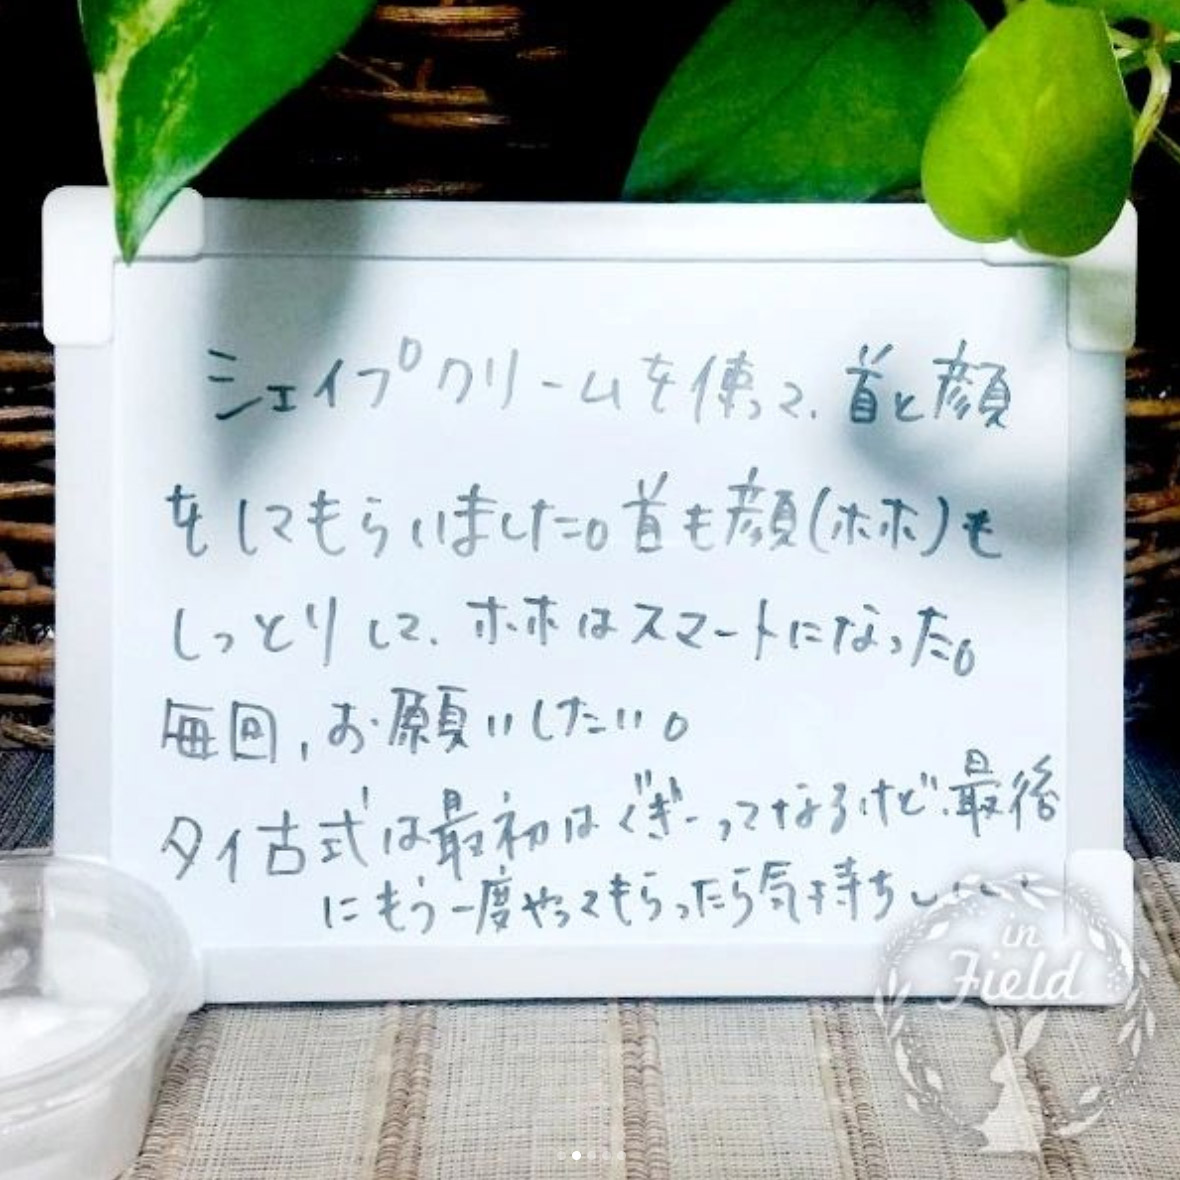 シェイプクリームを使って、首と顔
をしてもらいました。首も顔(ホホ)も
しっとりして、ホホはスマートになった。
毎回、お願いしたい。
タイ古式は最初はぐぎーってなるけど、最後
にもう一度やってもらったら気持ちいい
in
Field